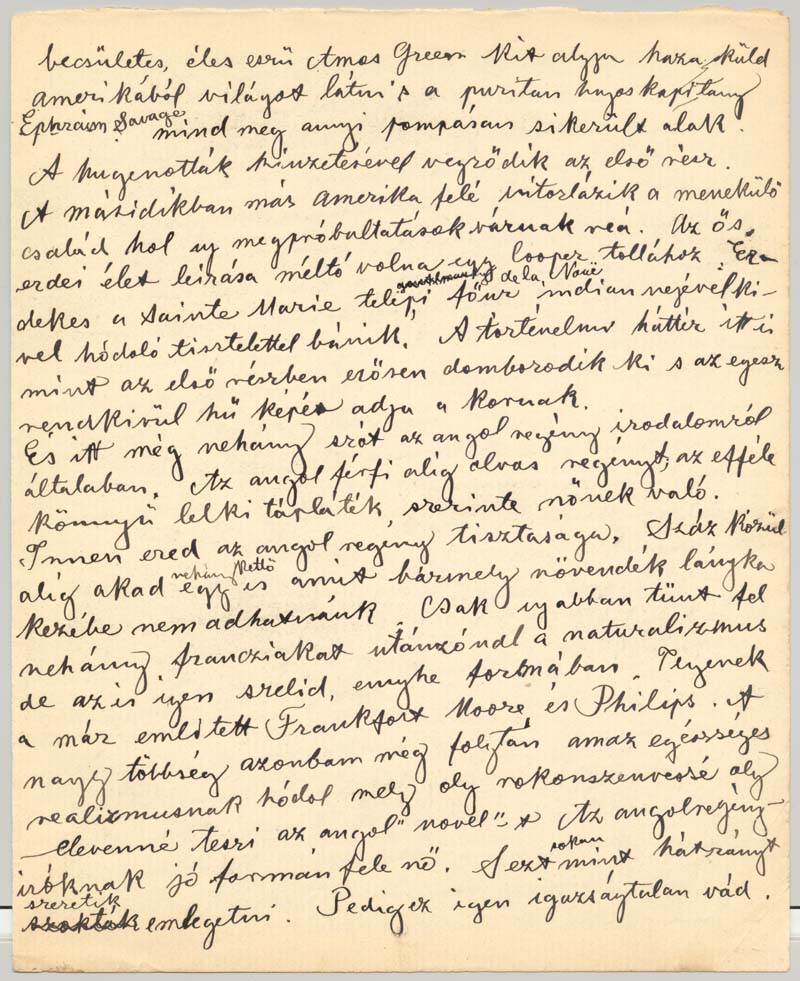 becsületes, éles eszü Amos Green kit atyja haza küld
amerikából világot látni s a puritan hajoskapitany
Ephraim Savage mind meg annyi pompásan sikerült alak.
A hugenották kiüzetésével vegződik az első resz.
A másidikban már Amerika felé vitorlázik a menekülő
család hol uj megpróbaltatások várnak reá. Az ős-
erdei élet leirása méltó volna egy Cooper tollához. Ér-
gentilmany de la Noüe
dekes a Sainte Marie telepi főúr indian nejével ki-
vel hódoló tisztelettel bánik. A történelmi háttér itt is
mint az első részben erősen domborodik ki s az egesz
rendkivül hű képét adja a kornak.
És itt még nehány szót az angol regény irodalomról
általaban. Az angol férfi alig olvas regényt, az efféle
könnyű lelki táplálék szerinte nőnek való.
Innen ered az angol regény tisztasága. Száz közül
nehány kettő
alig akad egy is amit bármely növendék lányka
kezébe nem adhatnánk. Csak ujabban tünt fel
nehány francziakat utánzónál a naturalizmus
de az is igen szelid, enyhe formában. Ilyenek
a már emlitett Frankfort Moore és Philips. A
nagy többség azonban még folytán amaz egészséges
realizmusnak hódol mely oly rokonszenvessé oly
elevenné teszi az angol "novel"-t. Az angol regény-
iróknak jó formán fele nő. S ezt sokan mint hátrányt
szeretik
szokták emlegetni. Pedig ez igen igazságtalan vád.